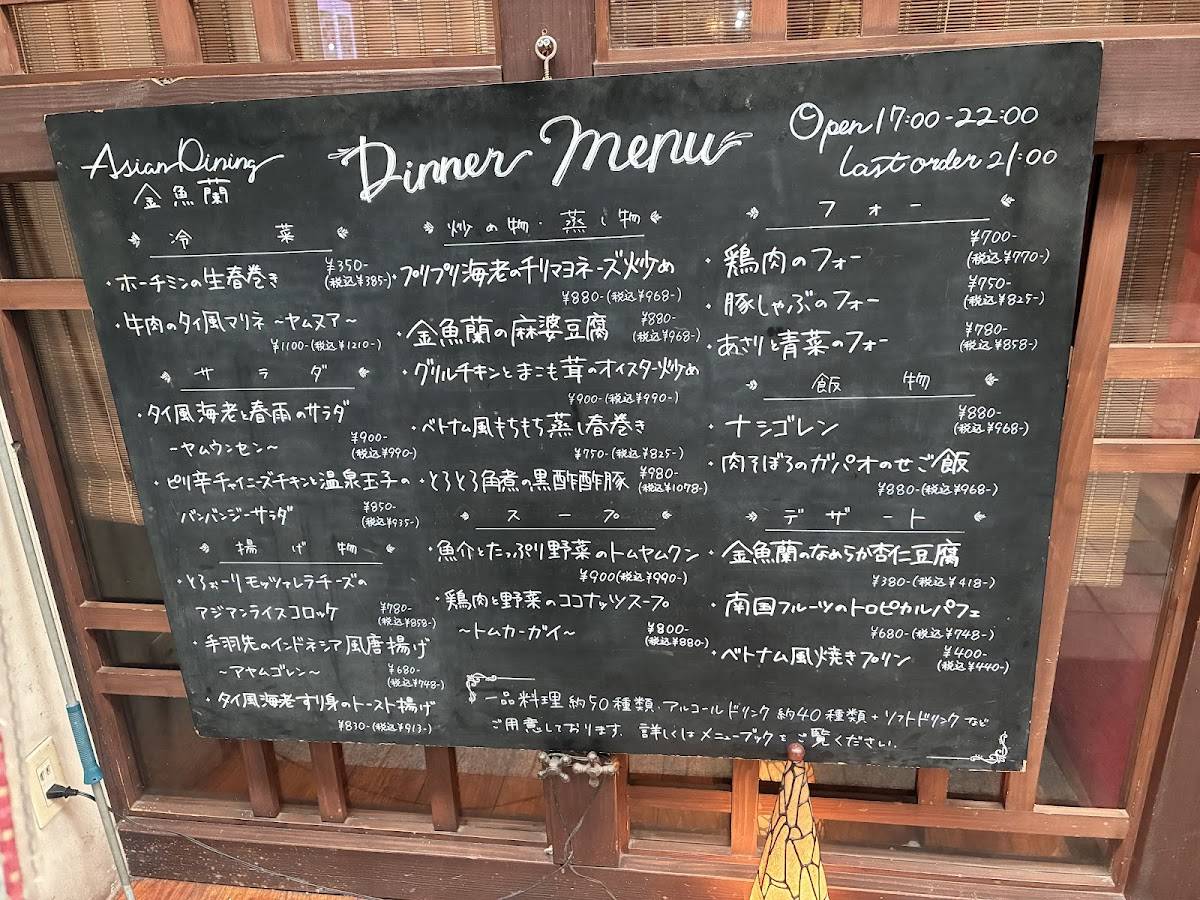 Asian Dining
金魚蘭
Dinner Menu
Open 17:00-22:00
Last order 21:00
冷菜
・ホーチミンの生春巻き ¥350-
(税込¥385-)
・牛肉のタイ風マリネ 〜ヤムヌア〜
¥1100-(税込¥1210-)
サラダ
・タイ風海老と春雨のサラダ
〜ヤムウンセン〜 ¥900-
(税込¥990-)
・ピリ辛チャイニーズチキンと温泉玉子の
バンバンジーサラダ ¥850-
(税込¥935-)
揚げ物
・とろぉ〜りモッツァレラチーズの
アジアンライスコロッケ ¥780-
(税込¥858-)
・手羽先のインドネシア風唐揚げ
〜アヤムゴレン〜 ¥680-
(税込¥748-)
・タイ風海老すり身のトースト揚げ
¥830-(税込¥913-)
炒め物・蒸し物
・プリプリ海老のチリマヨネーズ炒め
¥880-(税込¥968-)
・金魚蘭の麻婆豆腐 ¥880-
(税込¥968-)
・グリルチキンとまこも茸のオイスター炒め
¥900-(税込¥990-)
・ベトナム風もちもち蒸し春巻き
¥750-(税込¥825-)
・とろとろ角煮の黒酢酢豚 ¥980-
(税込¥1078-)
スープ
・魚介とたっぷり野菜のトムヤムクン
¥900(税込¥990-)
・鶏肉と野菜のココナッツスープ
〜トムカーガイ〜 ¥800-
(税込¥880-)
フォー
・鶏肉のフォー ¥700-
(税込¥770-)
・豚しゃぶのフォー ¥750-
(税込¥825-)
・あさりと青菜のフォー ¥780-
(税込¥858-)
飯物
・ナシゴレン ¥880-
(税込¥968-)
・肉そぼろのガパオのせご飯
¥880-(税込¥968-)
デザート
・金魚蘭のなめらか杏仁豆腐
¥380-(税込¥418-)
・南国フルーツのトロピカルパフェ
¥680-(税込¥748-)
・ベトナム風焼きプリン ¥400-
(税込¥440-)
一品料理 約50種類、アルコールドリンク 約40種類+ソフトドリンクなど
ご用意しております。詳しくはメニューブックをご覧ください。